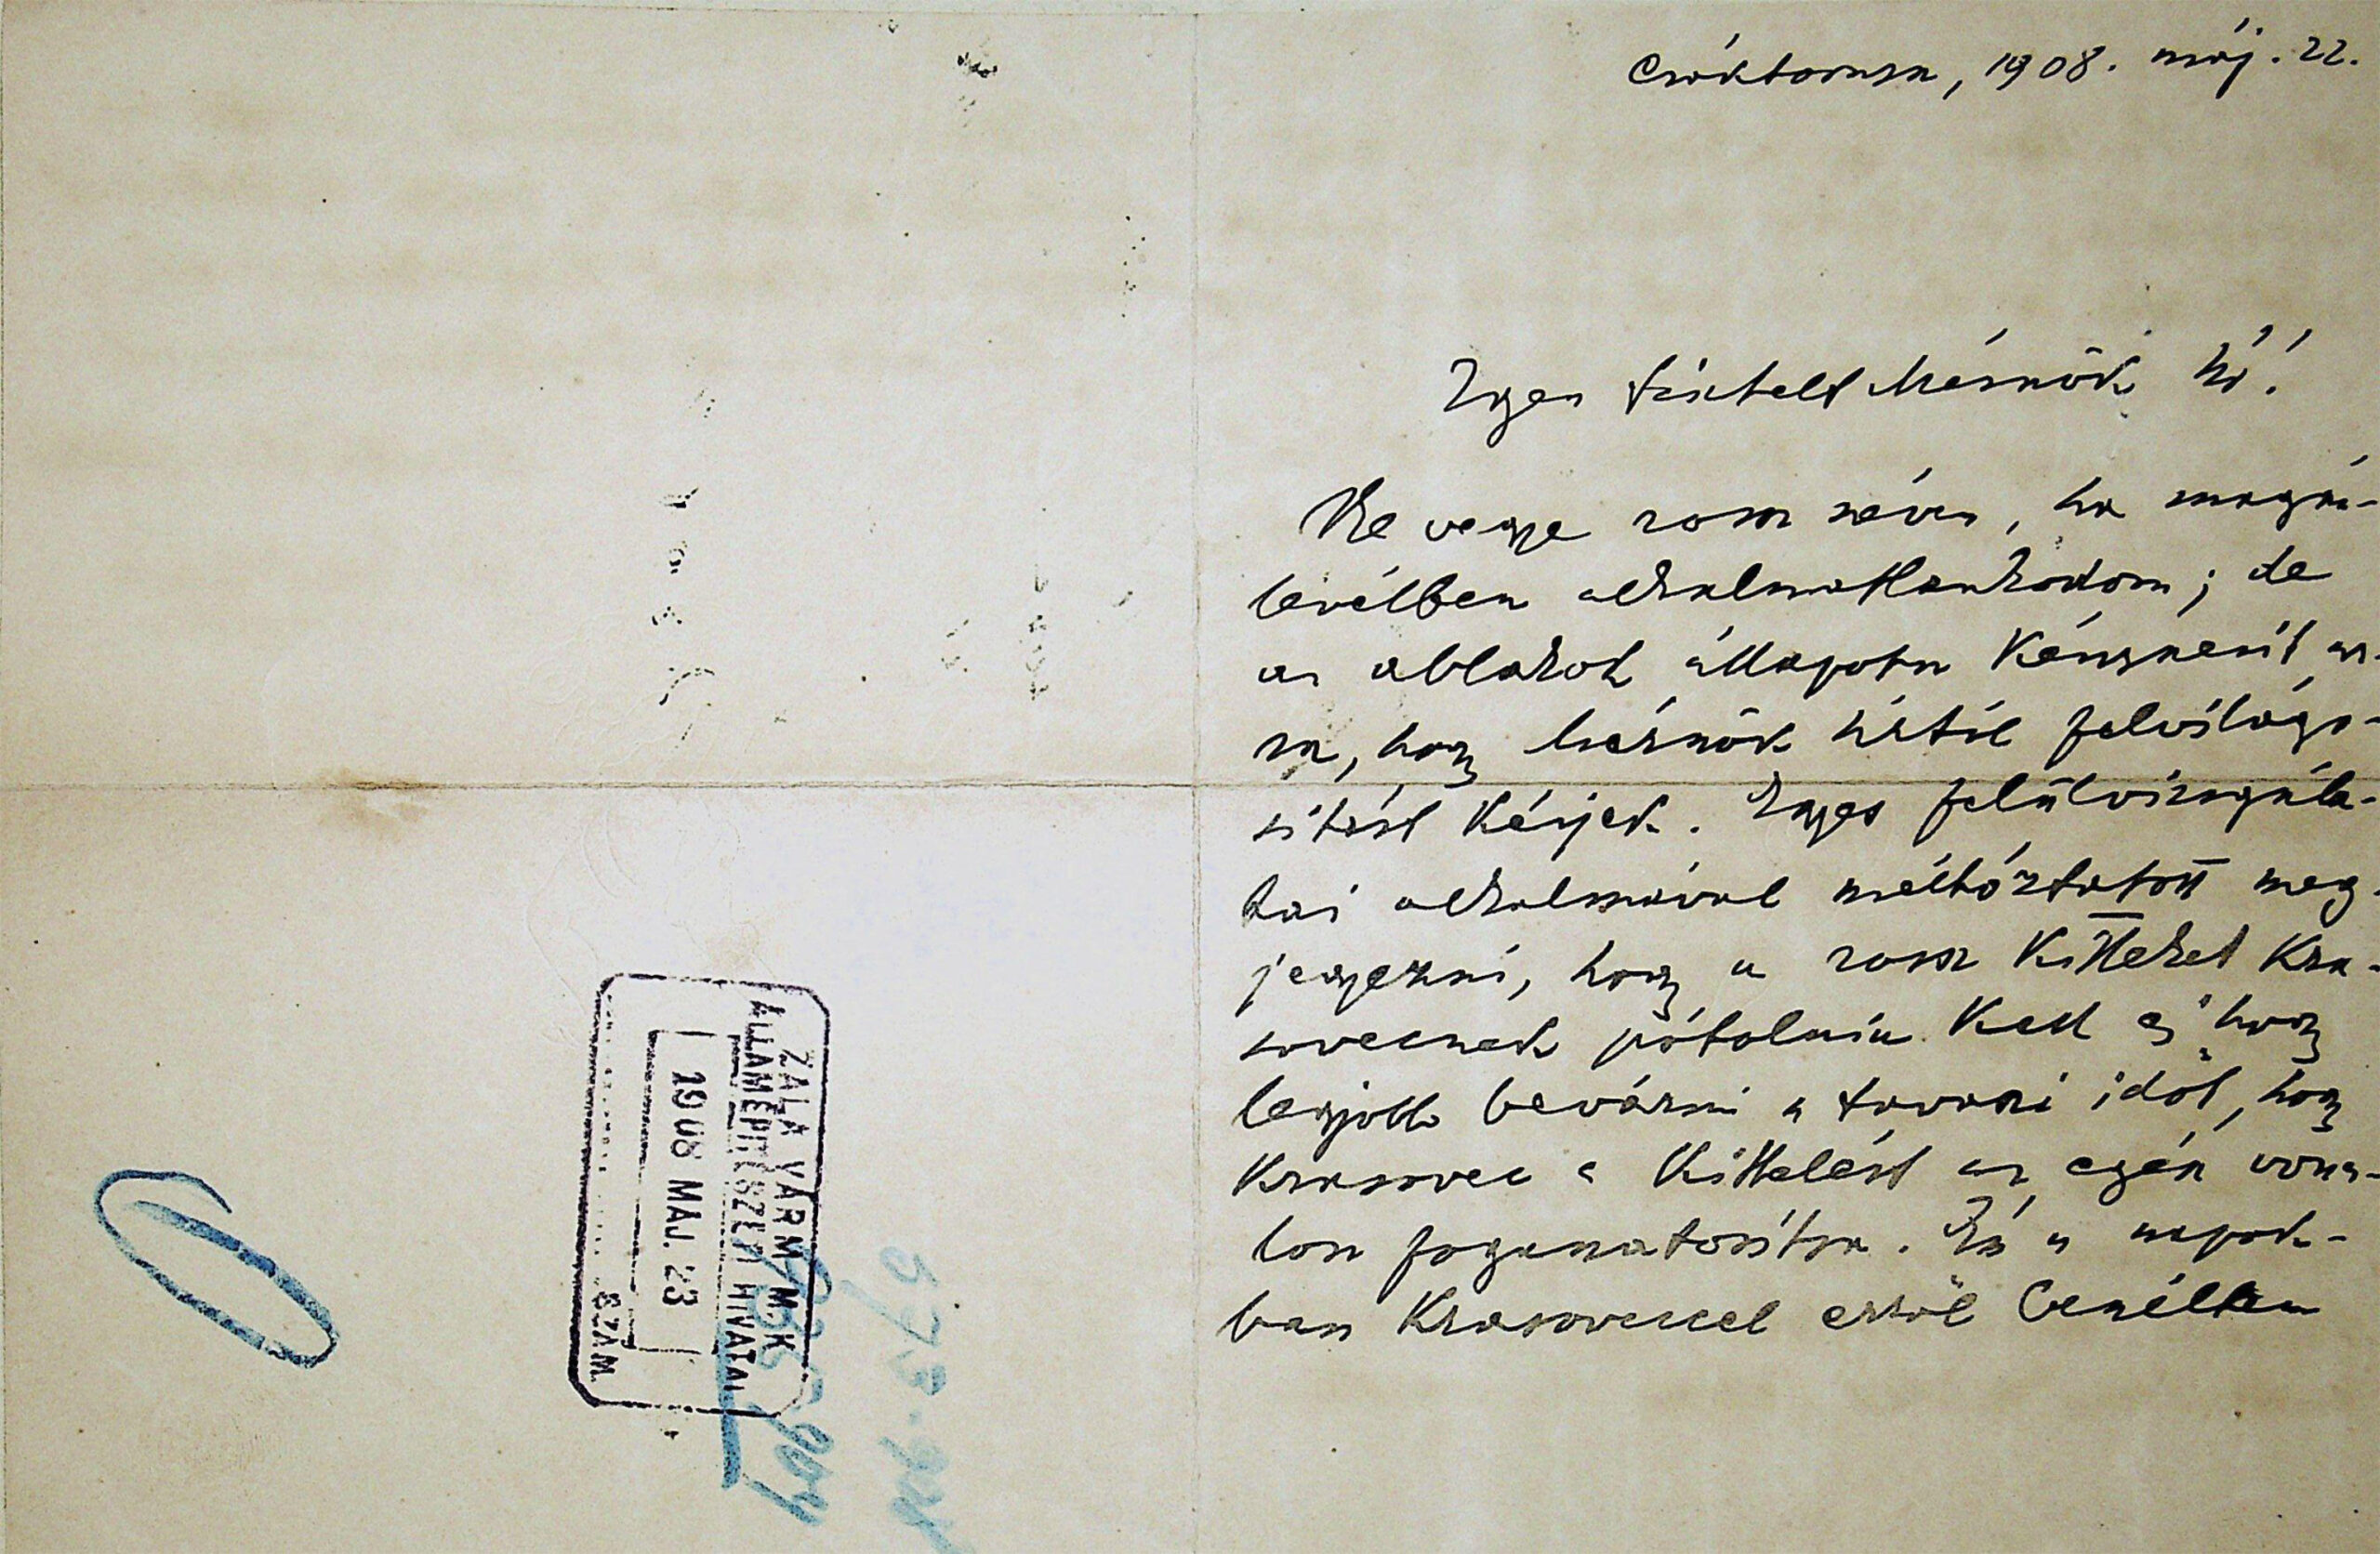 Csáktornya, 1908. máj. 22.
Igen tisztelt Mérnök Úr!
Ne vegye rossz néven, ha magán-
levélben alkalmatlankodom; de
az ablakok állapota kényszerít ar-
ra, hogy Mérnök úrtól felvilágo-
sítást kérjek. Egyes felülvizsgála-
tai alkalmával méltóztatott meg-
jegyezni, hogy a rossz kitteket Kra-
sovecnek pótolnia kell és hogy
legjobb bevárni a tavaszi időt, hogy
Krasovec a kittelést az egész vona-
lon foganatosítsa. Én a napok-
ban Krasoveccel erről beszéltem
ZALA VÁRM. M. K.
ÁLLAMÉPITÉSZETI HIVATAL
1908 MÁJ. 23
SZÁM.